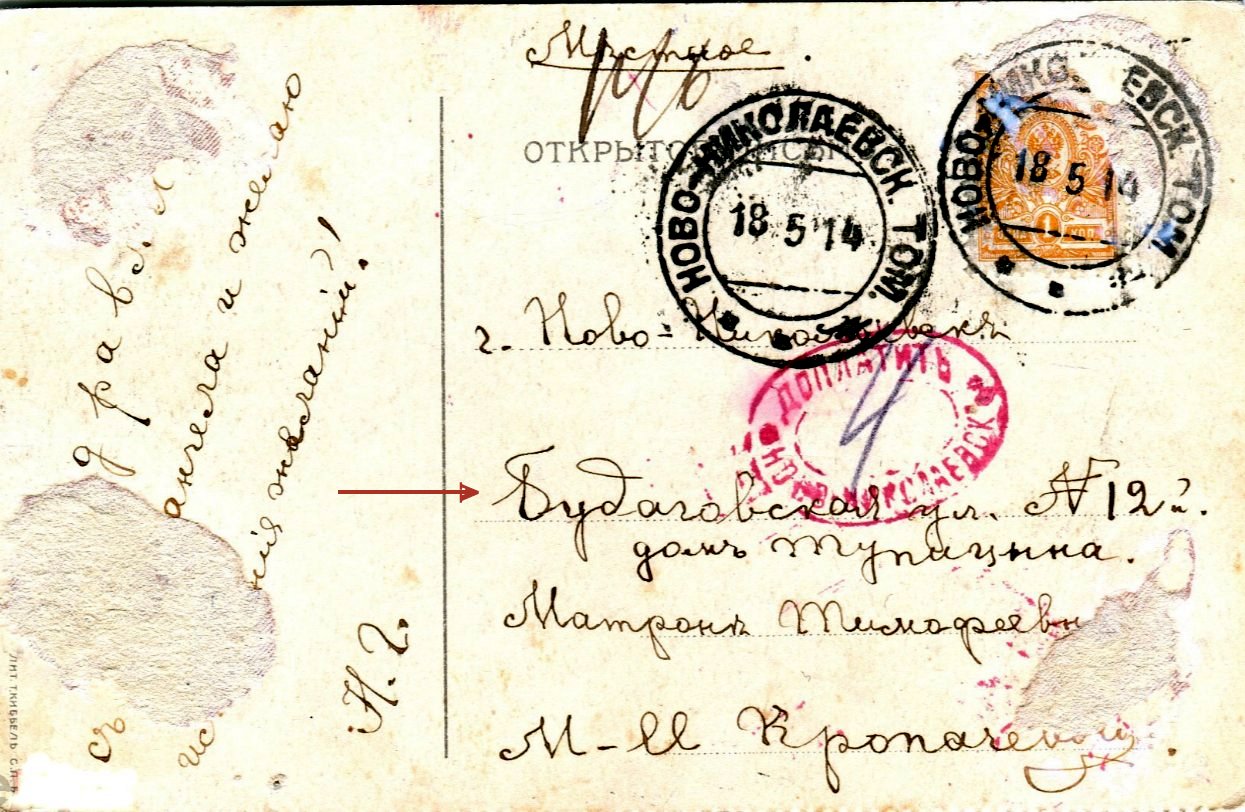 Мѣстное.
ОТКРЫТОЕ ПИСЬМО
НОВО-НИКОЛАЕВСК. ТОМ.
18 5 14
НОВО-НИКО ЕВСК. ТОМ
18 5 14
1 КОП.
г. Ново-Николаевскъ
ДОПЛАТИТЬ
НОВО-НИКОЛАЕВСК.
4
Будаговская ул. № 12й.
домъ Тупицына.
Матронѣ Тимофеевн
М-ll Кропачевой.
здравл
ангела и желаю
ній желаній!
съ
ис
Н. Г.
ЛИТ. Т.КИББЕЛЬ С.П-Б